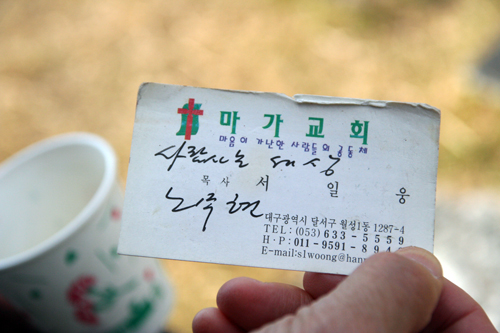 마가교회
마음이 가난한 사람들의 공동체
사람사는 세상
목사 서 일 웅
노주현
대구광역시 달서구 월성1동 1287-4
TEL: (053) 633-5559
H·P: 011-9591-89
E-mail:slwoong@han